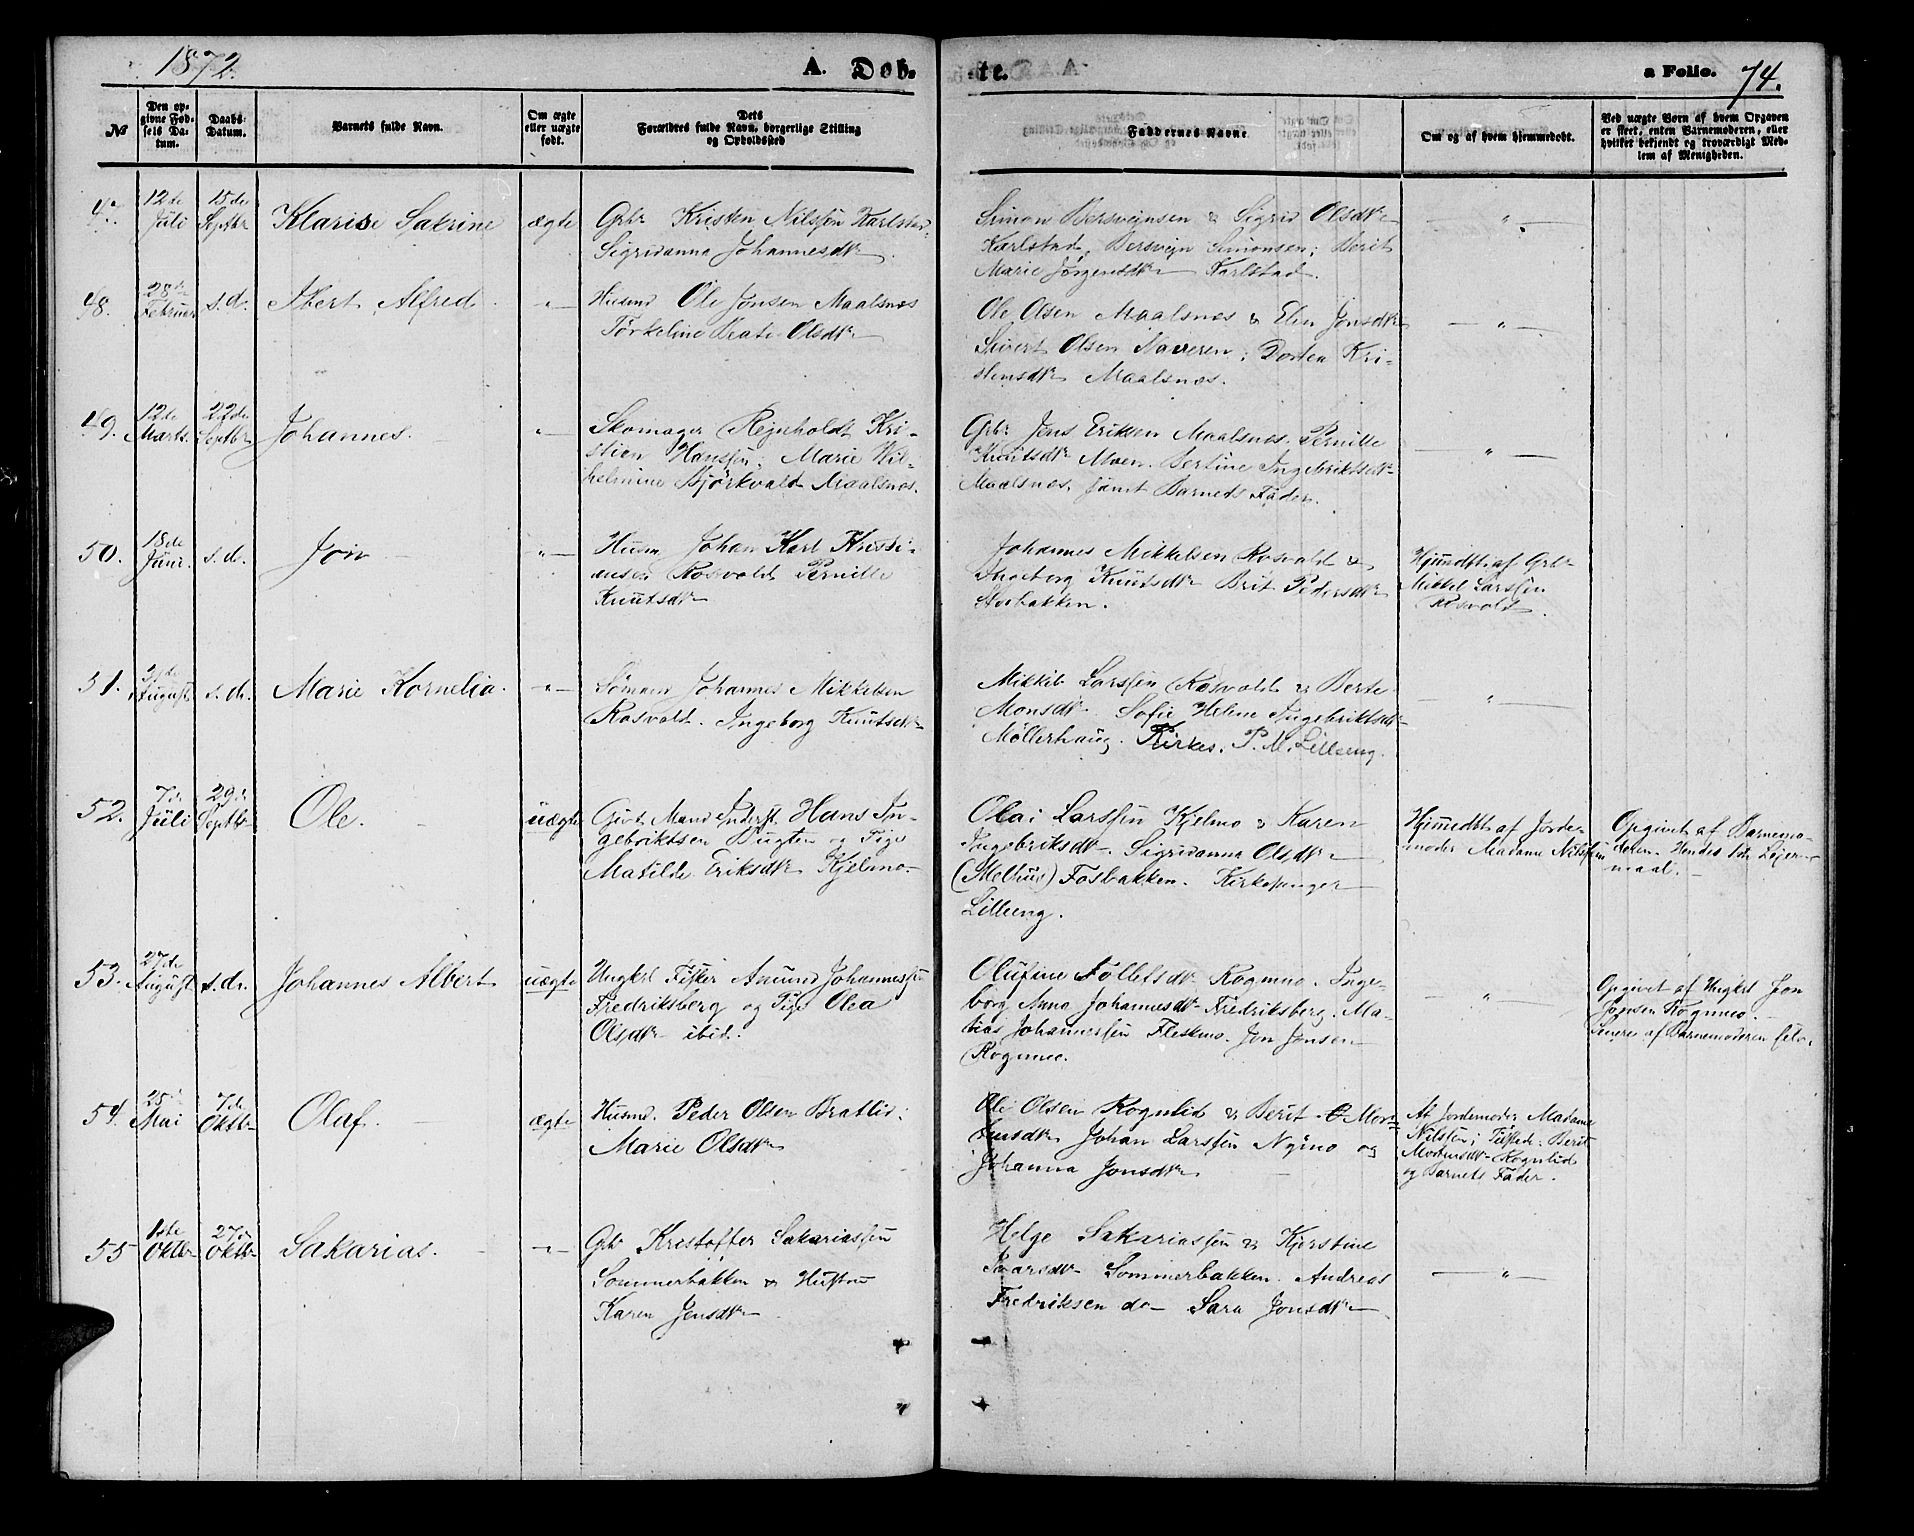 1872.
A. Døb-
te.
a Folio. 74.
№
Den op-
givne Fød-
sels Da-
tum.
Daabs-
Datum.
Barnets fulde Navn.
Om ægte
eller uægte
født.
Dets
Forældres fulde Navn, borgerlige Stilling
og Opholdssted
Faddernes Navne
Om og af hvem hjemmedøbt.
Ved uægte Børn af hvem Opgaven
er skeet, enten Barnemoderen, eller
hvilket bekjendt og troværdigt Med-
lem af Menigheden.
47.
12te
Juli
15de
Septbr
Klarise Sakrine
ægte
Gbr Kristen Nilssen Karlstad
Sigridanna Johannesdtr
Simon Bersvejnsen & Sigrid Olsdtr
Karlstad, Bersvejn Simonsen; Berit
Marie Jørgensdtr Karlstad.
— " —
48.
28de
Februar
s.d.
Ibert Alfred
"—
Husmd Ole Jonsen Maalsnes
Torkeline Beate Olsdtr
Ole Olsen Maalsnes & Elen Jonsdtr
Sivert Olsen Naveren; Dortea Kri-
stensdtr Maalsnes.
— " —
49.
12te
Marts.
22de
Septbr
Johannes.
"—
Skomager Rejnholdt Kri-
stien Hanssen; Marie Wil-
helmine Bjørkvold Maalsnes.
Gbr Jens Eriksen Maalsnes. Pernille
Knutsdtr Moen. Bertine Ingebriktsdtr
Maalsnes, samt Barnets Fader.
— " —
50.
18de
Juni.
s.d.
Jon
"—
Husm Johan Karl Kristi-
ansen Rosvold Pernille
Knutsdtr
Johannes Mikkelsen Rosvold &
Ingeborg Knutsdtr Brit Pedersdtr
Storbakken.
Hjemdbt af Gbr
Mikkel Larssen
Rosvold.
51.
August
s.d.
Marie Kornelia.
"—
Sømand Johannes Mikkelsen
Rosvold. Ingeborg Knutsdtr
Mikkel Larssen Rosvold & Berte
Monsdtr. Sofie Helene Ingebriktsdtr
Møllerhaug. Kirkes. P. M. Lilleeng.
— " —
52.
7de
Juli
29de
Septbr
Ole.
uægte
Gift Mand Inderst Hans In-
gebriktsen Bugten og Pige
Matilde Eriksdtr Kjelmo
Olai Larssen Kjelmo & Karen
Ingebriksdtr. Sigridanna Olsdtr
(Melhus) Fosbakken. Kirkesanger
Lilleeng.
Hjemdbt af Jorde-
moder Madame Nilssen
Opgivet af Barnemo-
deren. Hendes 1ste Lejer-
maal.
53.
27de
August
s.d.
Johannes Albert
uægte
Ungkrl Fisker Amund Johannessen
Fredriksberg og Pige Olea
Olsdtr ibid.
Olufine Tollefsdtr Rognmo. Inge-
borg Anna Johannesdtr Fredriksberg. Ma-
tias Johannessen Fleskmo. Jon Jonsen
Rognmo.
— " —
Opgivet af Ungkrl Jon
Jonsen Rognmo.
Senere af Barnemoderen selv.
54.
25de
Mai
7de
Oktbr
Olaf.
ægte
Husmd. Peder Olsen Bratlid;
Marie Olsdtr
Ole Olsen Rognlid & Berit Mor-
tensdtr Johan Larssen Nymo og
Johanna Jonsdtr
Af Jordemoder Madame
Nilssen; Tilstede: Berit
Mortensdtr Rognlid
og Barnets Fader.
55
1ste
Oktbr
27de
Oktbr
Sakarias.
"—
Gbr Kristoffer Sakariassen
Sommerbakken & Hustru
Karen Jensdtr
Helge Sakariassen & Kjerstine
Ivarsdtr Sommerbakken. Andreas
Fredriksen do Sara Jonsdtr
— " —